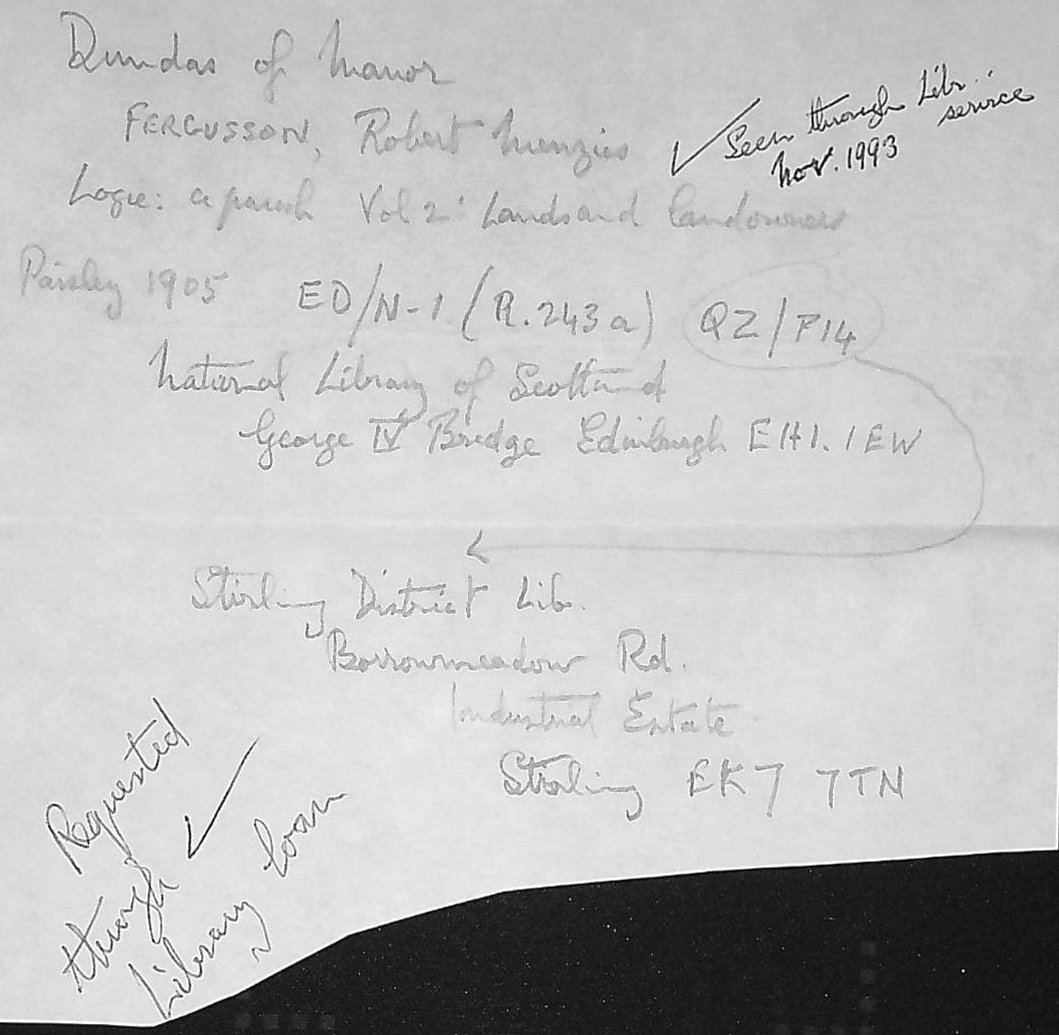 Dundas of Manor
FERGUSSON, Robert Menzies
✓ Seen through Libr. service
Nov. 1993
Logie: a parish Vol 2: Lands and landowners
Paisley 1905 ED/N-1 (R.243a) QZ/P14
National Library of Scotland
George IV Bridge Edinburgh EH1.1EW
Stirling District Lib.
Borrowmeadow Rd.
Industrial Estate
Stirling EK7 7TN
Requested ✓
through
Library loan